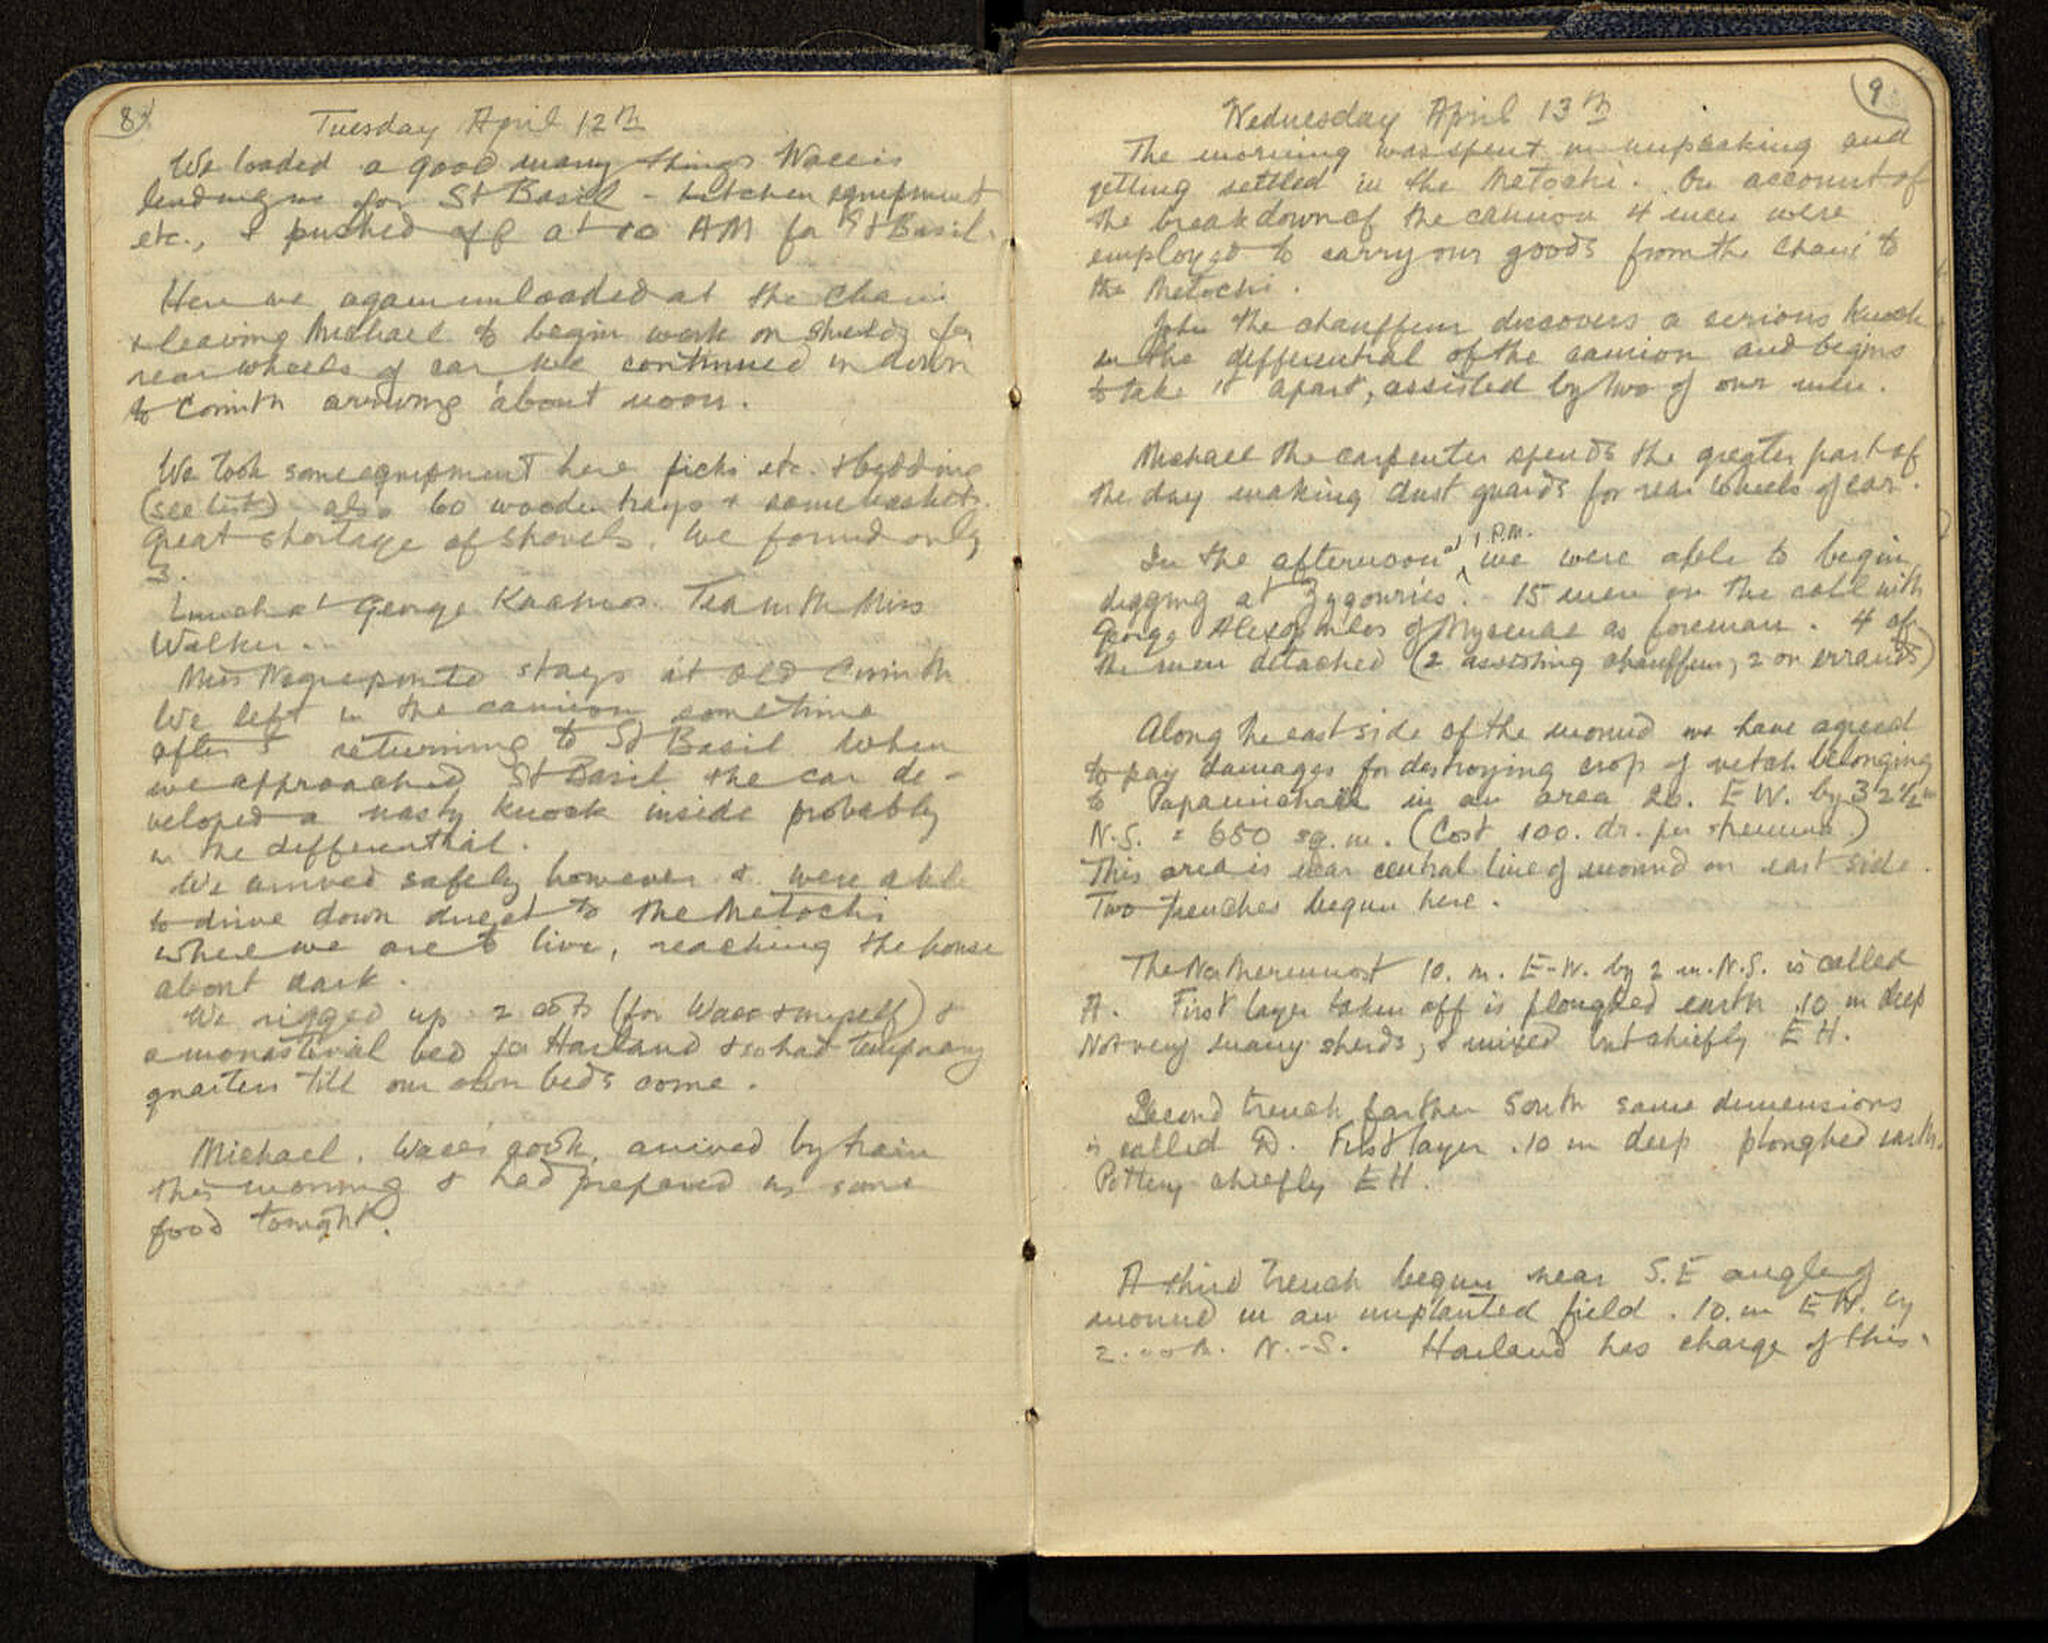 8
Tuesday April 12th
We loaded a good many things Wace is
lending us for St Basil - kitchen equipment
etc., & pushed off at 10 AM for St Basil.
Here we again unloaded at the Chani
& leaving Michael to begin work on shields for
rear wheels of car, we continued on down
to Corinth arriving about noon.
We took some equipment here picks etc. & bedding
(see list) also 60 wooden trays & some baskets.
Great shortage of shovels. We found only
3.
Lunch at George Kachros. Tea with Miss
Walker.
Miss Negreponte stays at Old Corinth
We left in the camion sometime
after 5 returning to St Basil When
we approached St Basil the car de-
veloped a nasty knock inside probably
in the differential.
We arrived safely however & were able
to drive down direct to the Metochi
where we are to live, reaching the house
about dark.
We rigged up 2 cots (for Wace & myself) &
a monastirial bed for Harland & so had temporary
quarters till our own beds come.
Michael, Wace's cook, arrived by train
this morning & had prepared us some
food tonight.
9
Wednesday April 13th
The morning was spent in unpacking and
getting settled in the Metochi. On account of
the breakdown of the camion 4 men were
employed to carry our goods from the Chani to
the Metochi.
John the chauffeur discovers a serious knock
in the differential of the camion and begins
to take it apart, assisted by two of our men.
Michael the carpenter spends the greater part of
the day making dust guards for rear wheels of car.
In the afternoon at 1 P.M. we were able to begin
digging at Zygouries. - 15 men on the call with
George Alexopoulos of Mycenae as foreman. 4 of
the men detached (2 assisting chauffeur, 2 on errands)
Along the east side of the mound we have agreed
to pay damages for destroying crop of vetch belonging
to Papamichael in an area 20. E W. by 32 ½ m
N.S. = 650 sq. m. (Cost 100. dr. per stremma.)
This area is near central line of mound on east side.
Two trenches begun here.
The Northernmost 10. m. E-W. by 2 m. N.S. is called
A. First layer taken off is ploughed earth .10 m deep
Not very many sherds, & mixed but chiefly E H.
Second trench farther South same dimensions
is called D. First layer .10 m deep ploughed earth.
Pottery chiefly E H.
A third trench begun near S.E angle of
mound in an unplanted field. 10. m E W. by
2.00 m. N.-S. Harland has charge of this.